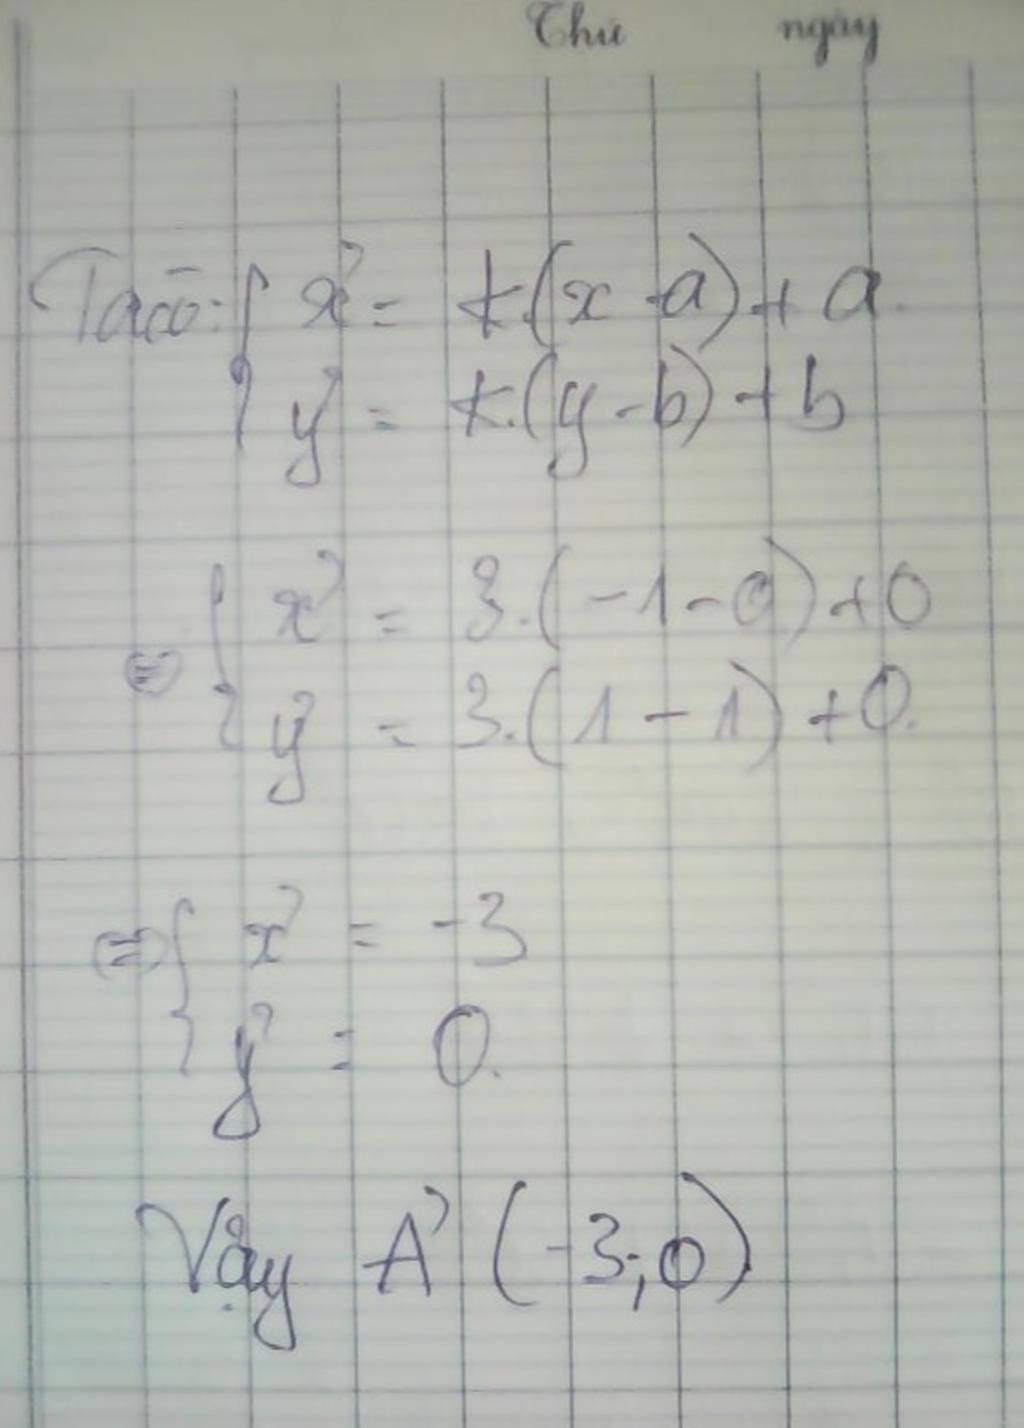 Thứ ngày
Ta có: { x' = k.(x-a) + a.
y' = k.(y-b) + b
⇔ { x' = 3.(-1-0)+0
y' = 3.(1-1)+0.
⇔ { x' = -3
y' = 0.
Vậy A' (-3;0)